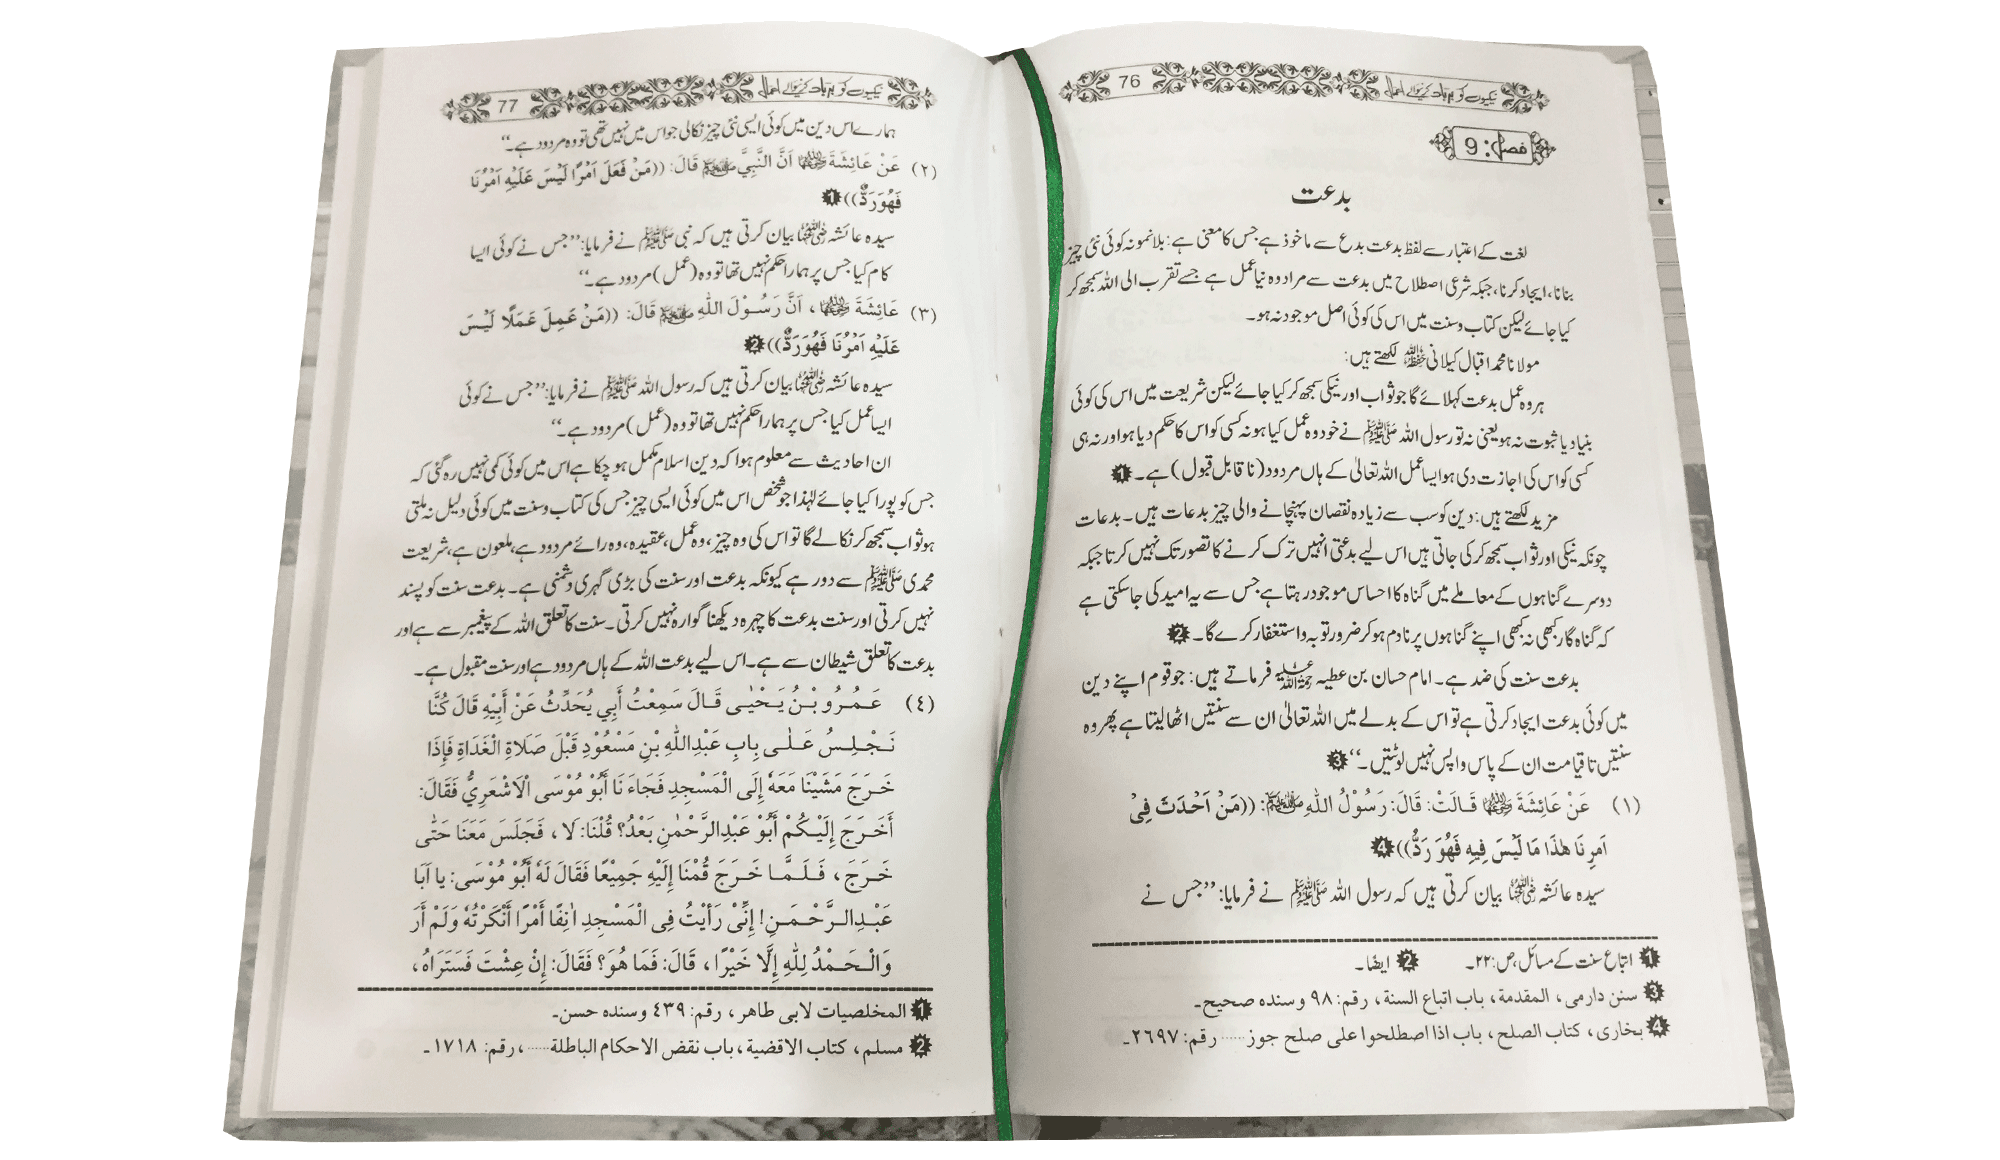 نیکیوں کو برباد کرنیوالے اعمال 76
فصل: 9
بدعت
لغت کے اعتبار سے لفظ بدعت بدع سے ماخوذ ہے جس کا معنی ہے: بلانمونہ کوئی نئی چیز
بنانا، ایجاد کرنا، جبکہ شرعی اصطلاح میں بدعت سے مراد وہ نیا عمل ہے جسے تقرب الی اللہ سمجھ کر
کیا جائے لیکن کتاب وسنت میں اس کی کوئی اصل موجود نہ ہو۔
مولانا محمد اقبال کیلانی حفظہ اللہ لکھتے ہیں:
ہر وہ عمل بدعت کہلائے گا جو ثواب اور نیکی سمجھ کر کیا جائے لیکن شریعت میں اس کی کوئی
بنیاد یا ثبوت نہ ہو یعنی نہ تو رسول اللہ ﷺ نے خود وہ عمل کیا ہو نہ کسی کو اس کا حکم دیا ہو اور نہ ہی
کسی کو اس کی اجازت دی ہو ایسا عمل اللہ تعالیٰ کے ہاں مردود (نا قابل قبول) ہے۔ ❶
مزید لکھتے ہیں: دین کو سب سے زیادہ نقصان پہنچانے والی چیز بدعات ہیں۔ بدعات
چونکہ نیکی اور ثواب سمجھ کر کی جاتی ہیں اس لیے بدعتی انہیں ترک کرنے کا تصور تک نہیں کرتا جبکہ
دوسرے گناہوں کے معاملے میں گناہ کا احساس موجود رہتا ہے جس سے یہ امید کی جاسکتی ہے
کہ گناہ گار کبھی نہ کبھی اپنے گناہوں پر نادم ہو کر ضرور توبہ واستغفار کرے گا۔ ❷
بدعت سنت کی ضد ہے۔ امام حسان بن عطیہ رحمۃ اللہ علیہ فرماتے ہیں: جو قوم اپنے دین
میں کوئی بدعت ایجاد کرتی ہے تو اس کے بدلے میں اللہ تعالیٰ ان سے سنتیں اٹھا لیتا ہے پھر وہ
سنتیں تا قیامت ان کے پاس واپس نہیں لوٹتیں۔“ ❸
(١) عَنْ عَائِشَةَ رضی اللہ عنہا قَالَتْ: قَالَ: رَسُوْلُ اللهِ ﷺ: ((مَنْ اَحْدَثَ فِيْ
اَمْرِنَا هٰذَا مَا لَيْسَ فِيهِ فَهُوَ رَدٌّ)) ❹
سیدہ عائشہ رضی اللہ عنہا بیان کرتی ہیں کہ رسول اللہ ﷺ نے فرمایا: ”جس نے
❶ اتباع سنت کے مسائل، ص: ۲۲۔ ❷ ایضًا۔
❸ سنن دارمی، المقدمة، باب اتباع السنة، رقم: ٩٨ وسنده صحيح۔
❹ بخاری، کتاب الصلح، باب اذا اصطلحوا علی صلح جوز ...... رقم: ٢٦٩٧۔
نیکیوں کو برباد کرنیوالے اعمال 77
ہمارے اس دین میں کوئی ایسی نئی چیز نکالی جو اس میں نہیں تھی تو وہ مردود ہے۔“
(٢) عَنْ عَائِشَةَ رضی اللہ عنہا اَنَّ النَّبِيَّ ﷺ قَالَ: ((مَنْ فَعَلَ اَمْرًا لَيْسَ عَلَيْهِ اَمْرُنَا
فَهُوَرَدٌّ)) ❶
سیدہ عائشہ رضی اللہ عنہا بیان کرتی ہیں کہ نبی ﷺ نے فرمایا: ”جس نے کوئی ایسا
کام کیا جس پر ہمارا حکم نہیں تھا تو وہ (عمل) مردود ہے۔“
(٣) عَائِشَةَ رضی اللہ عنہا، اَنَّ رَسُوْلَ اللهِ ﷺ قَالَ: ((مَنْ عَمِلَ عَمَلًا لَيْسَ
عَلَيْهِ اَمْرُنَا فَهُوَرَدٌّ)) ❷
سیدہ عائشہ رضی اللہ عنہا بیان کرتی ہیں کہ رسول اللہ ﷺ نے فرمایا: ”جس نے کوئی
ایسا عمل کیا جس پر ہمارا حکم نہیں تھا تو وہ (عمل) مردود ہے۔“
ان احادیث سے معلوم ہوا کہ دین اسلام مکمل ہو چکا ہے اس میں کوئی کمی نہیں رہ گئی کہ
جس کو پورا کیا جائے لہٰذا جو شخص اس میں کوئی ایسی چیز جس کی کتاب وسنت میں کوئی دلیل نہ ملتی
ہو ثواب سمجھ کر نکالے گا تو اس کی وہ چیز، وہ عمل، عقیدہ، وہ رائے مردود ہے، ملعون ہے، شریعت
محمدی ﷺ سے دور ہے کیونکہ بدعت اور سنت کی بڑی گہری دشمنی ہے۔ بدعت سنت کو پسند
نہیں کرتی اور سنت بدعت کا چہرہ دیکھنا گوارہ نہیں کرتی۔ سنت کا تعلق اللہ کے پیغمبر سے ہے اور
بدعت کا تعلق شیطان سے ہے۔ اس لیے بدعت اللہ کے ہاں مردود ہے اور سنت مقبول ہے۔
(٤) عَمْرُو بْنُ يَحْيٰى قَالَ سَمِعْتُ أَبِي يُحَدِّثُ عَنْ أَبِيْهِ قَالَ كُنَّا
نَجْلِسُ عَلٰى بِابِ عَبْدِاللهِ بْنِ مَسْعُوْدٍ قَبْلَ صَلَاةِ الْغَدَاةِ فَإِذَا
خَرَجَ مَشَيْنَا مَعَهٗ إِلَى الْمَسْجِدِ فَجَاءَ نَا أَبُوْ مُوْسَى الْأَشْعَرِيُّ فَقَالَ:
أَخَرَجَ إِلَيْكُمْ أَبُوْ عَبْدِالرَّحْمٰنِ بَعْدُ؟ قُلْنَا: لَا، فَجَلَسَ مَعَنَا حَتّٰى
خَرَجَ، فَلَمَّا خَرَجَ قُمْنَا إِلَيْهِ جَمِيْعًا فَقَالَ لَهٗ أَبُوْ مُوْسَى: يا اَبَا
عَبْدِالرَّحْمَنِ! إِنِّيْ رَأَيْتُ فِي الْمَسْجِدِ اٰنِفًا أَمْرًا أَنْكَرْتُهٗ وَلَمْ أَرَ
وَالْحَمْدُ لِلّٰهِ إِلَّا خَيْرًا، قَالَ: فَمَا هُوَ؟ فَقَالَ: إِنْ عِشْتَ فَسَتَرَاهُ،
❶ المخلصيات لابی طاهر، رقم: ٤٣٩ وسنده حسن۔
❷ مسلم، کتاب الاقضية، باب نقض الاحکام الباطلة ......، رقم: ١٧١٨۔